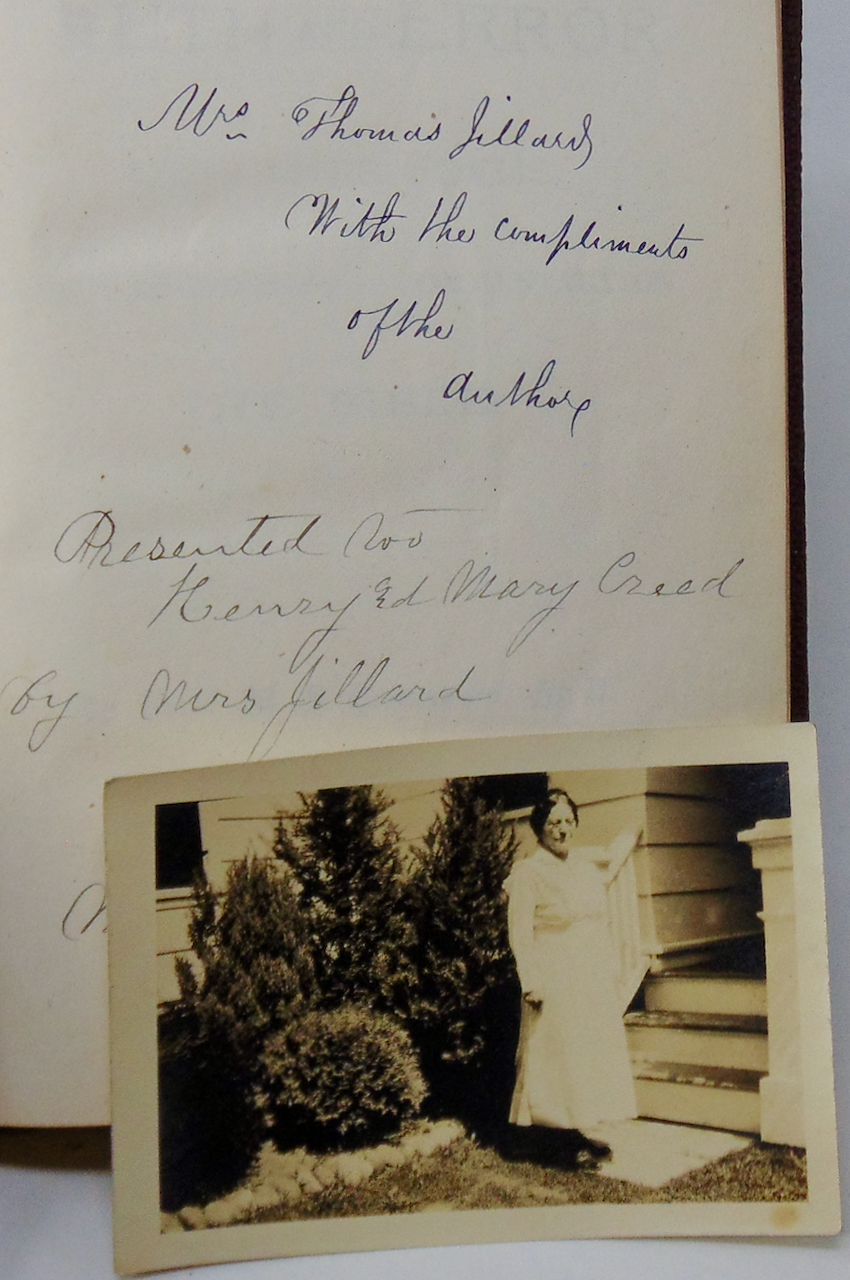 Mrs Thomas Jillard
With the compliments
of the
author
Presented too
Henry Ed Mary Creed
by Mrs Jillard